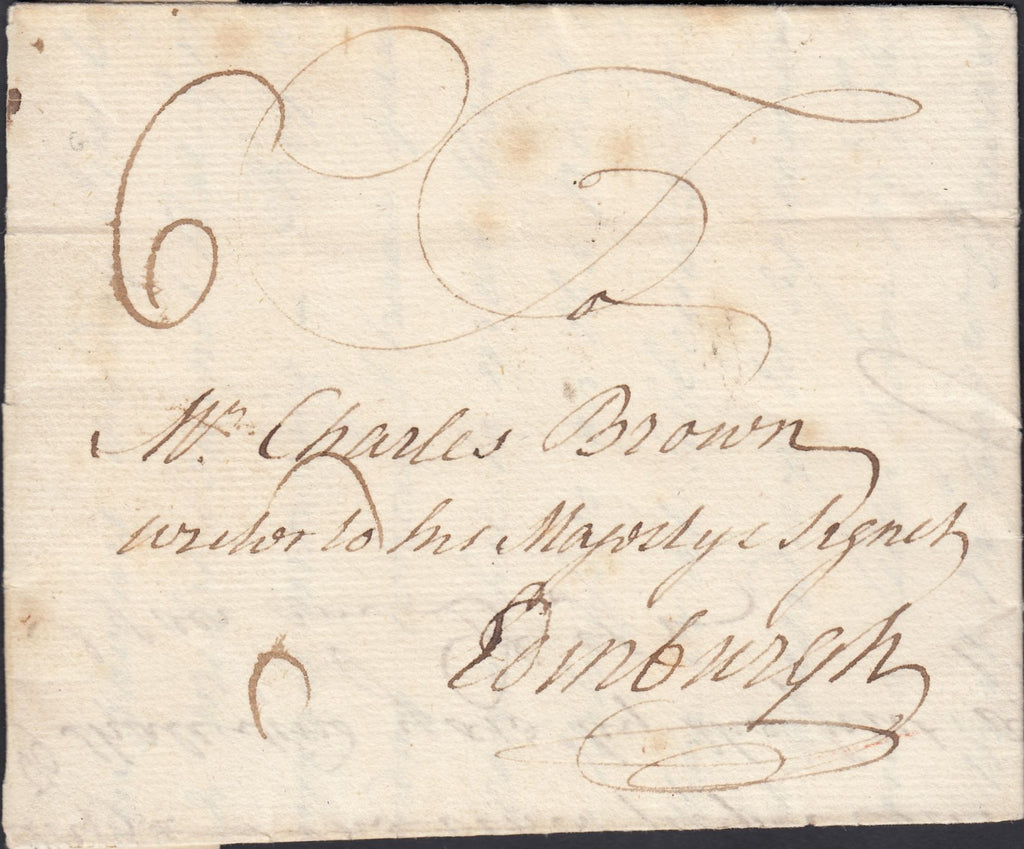 6
To
Mr. Charles Brown
writer to his Majestys Signet
Edinburgh